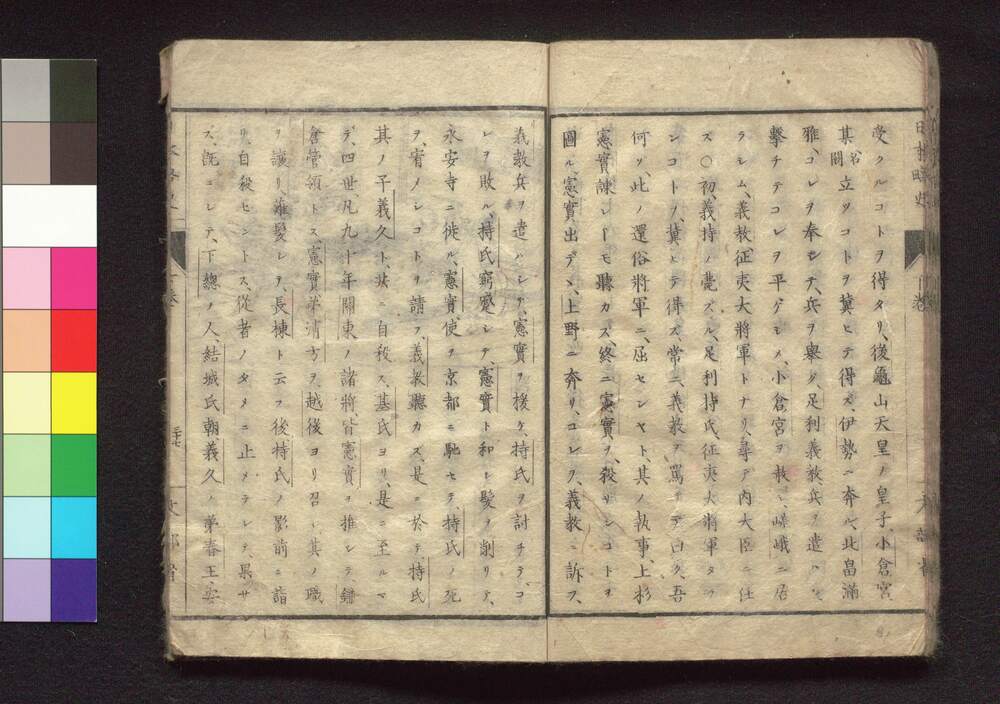 受クルコトヲ得タリ、後龜山天皇ノ皇子、小倉宮、
其名闕立ツコトヲ冀ヒテ得ズ、伊勢ニ奔ル、北畠滿
雅、コレヲ奉ジテ、兵ヲ擧グ、足利義教兵ヲ遣ハシ、
擊チテコレヲ平ゲシメ、小倉宮ヲ移シ、嵯峨ニ居
ラシム、義教征夷大將軍トナリ、尋デ內大臣ニ任
ズ〇初、義持ノ薨ズル、足利持氏、征夷大將軍タラ
ンコトヲ、冀ヒテ得ズ、常ニ、義教ヲ罵リテ曰ク、吾
何ゾ、此ノ還俗將軍ニ、屈センヤト、其ノ執事上杉
憲實諫レドモ聽カズ、終ニ憲實ヲ、殺サンコトヲ
圖ル、憲實出デヽ、上野ニ奔リ、コレヲ、義教ニ訴フ、
義教兵ヲ遣ハシテ、憲實ヲ援ケ、持氏ヲ討チテ、コ
レヲ敗ル、持氏窮蹙シテ、憲實ト和シ、髮ヲ削リテ、
永安寺ニ徙ル、憲實使ヲ京都ニ馳セテ、持氏ノ死
ヲ、宥メンコトヲ請フ、義教聽カズ、是ニ於テ、持氏
其ノ子義久ト、共ニ自殺ス、基氏ヨリ、是ニ至ルマ
デ、四世凡九十年關東ノ諸將、皆憲實ヲ推シテ、鎌
倉管領トス、憲實弟清方ヲ越後ヨリ召シ、其ノ職
ヲ讓リ、薙髮シテ、長棟ト云フ、後、持氏ノ影前ニ詣
リ、自殺セントス、從者ノタメニ止メラレテ、果サ
ズ、旣ニシテ、下總ノ人、結城氏朝、義久ノ弟春王、安